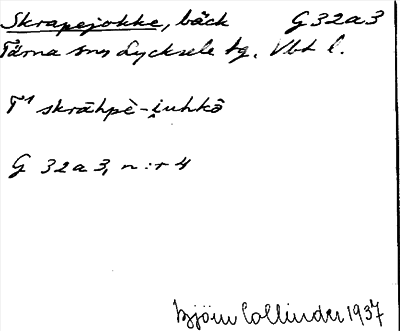 Skrapejokke, bäck G 32 a 3
Tärna sns Lycksele tg. Vbt l.
T¹ skrāhpè-i̯uhkô
G 32 a 3, n:r 4
Björn Collinder 1937